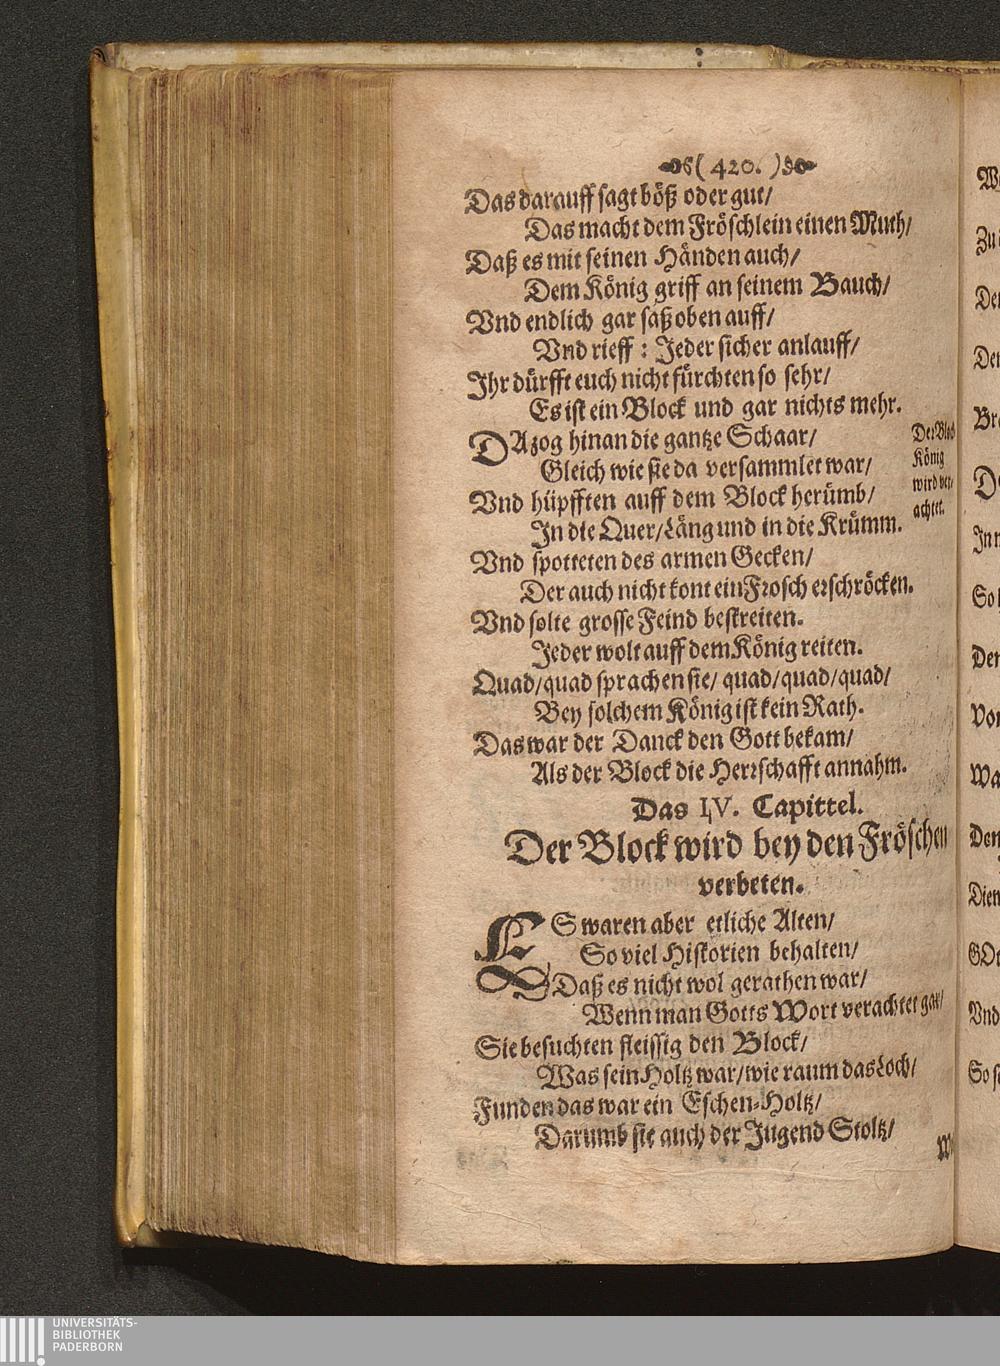 ( 420. )
Das darauff sagt böß oder gut/
Das macht dem Fröschlein einen Muth/
Daß es mit seinen Händen auch/
Dem König griff an seinem Bauch/
Vnd endlich gar saß oben auff/
Vnd rieff : Jeder sicher anlauff/
Jhr dürfft euch nicht fürchten so sehr/
Es ist ein Block und gar nichts mehr.
DA zog hinan die gantze Schaar/
Gleich wie sie da versammlet war/
Vnd hüpfften auff dem Block herümb/
Jn die Quer/ Läng und in die Krümm.
Der Block
König
wird ver/
achtet.
Vnd spotteten des armen Gecken/
Der auch nicht kont ein Frosch erschröcken.
Vnd solte grosse Feind bestreiten.
Jeder wolt auff dem König reiten.
Quad/ quad sprachen sie/ quad/ quad/ quad/
Bey solchem König ist kein Rath.
Das war der Danck den Gott bekam/
Als der Block die Herrschafft annahm.
Das IV. Capittel.
Der Block wird bey den Fröschen
verbeten.
ES waren aber etliche Alten/
So viel Historien behalten/
Daß es nicht wol gerathen war/
Wenn man Gotts Wort verachtet gar/
Sie besuchten fleissig den Block/
Was sein Holtz war/ wie raum das Loch/
Funden das war ein Eschen-Holtz/
Darumb sie auch der Jugend Stoltz/
Zu
Der
Der
Jn
So
Den
Vor
Wa
Den
Dien
GOt
Vnd
So
UNIVERSITÄTS-
BIBLIOTHEK
PADERBORN